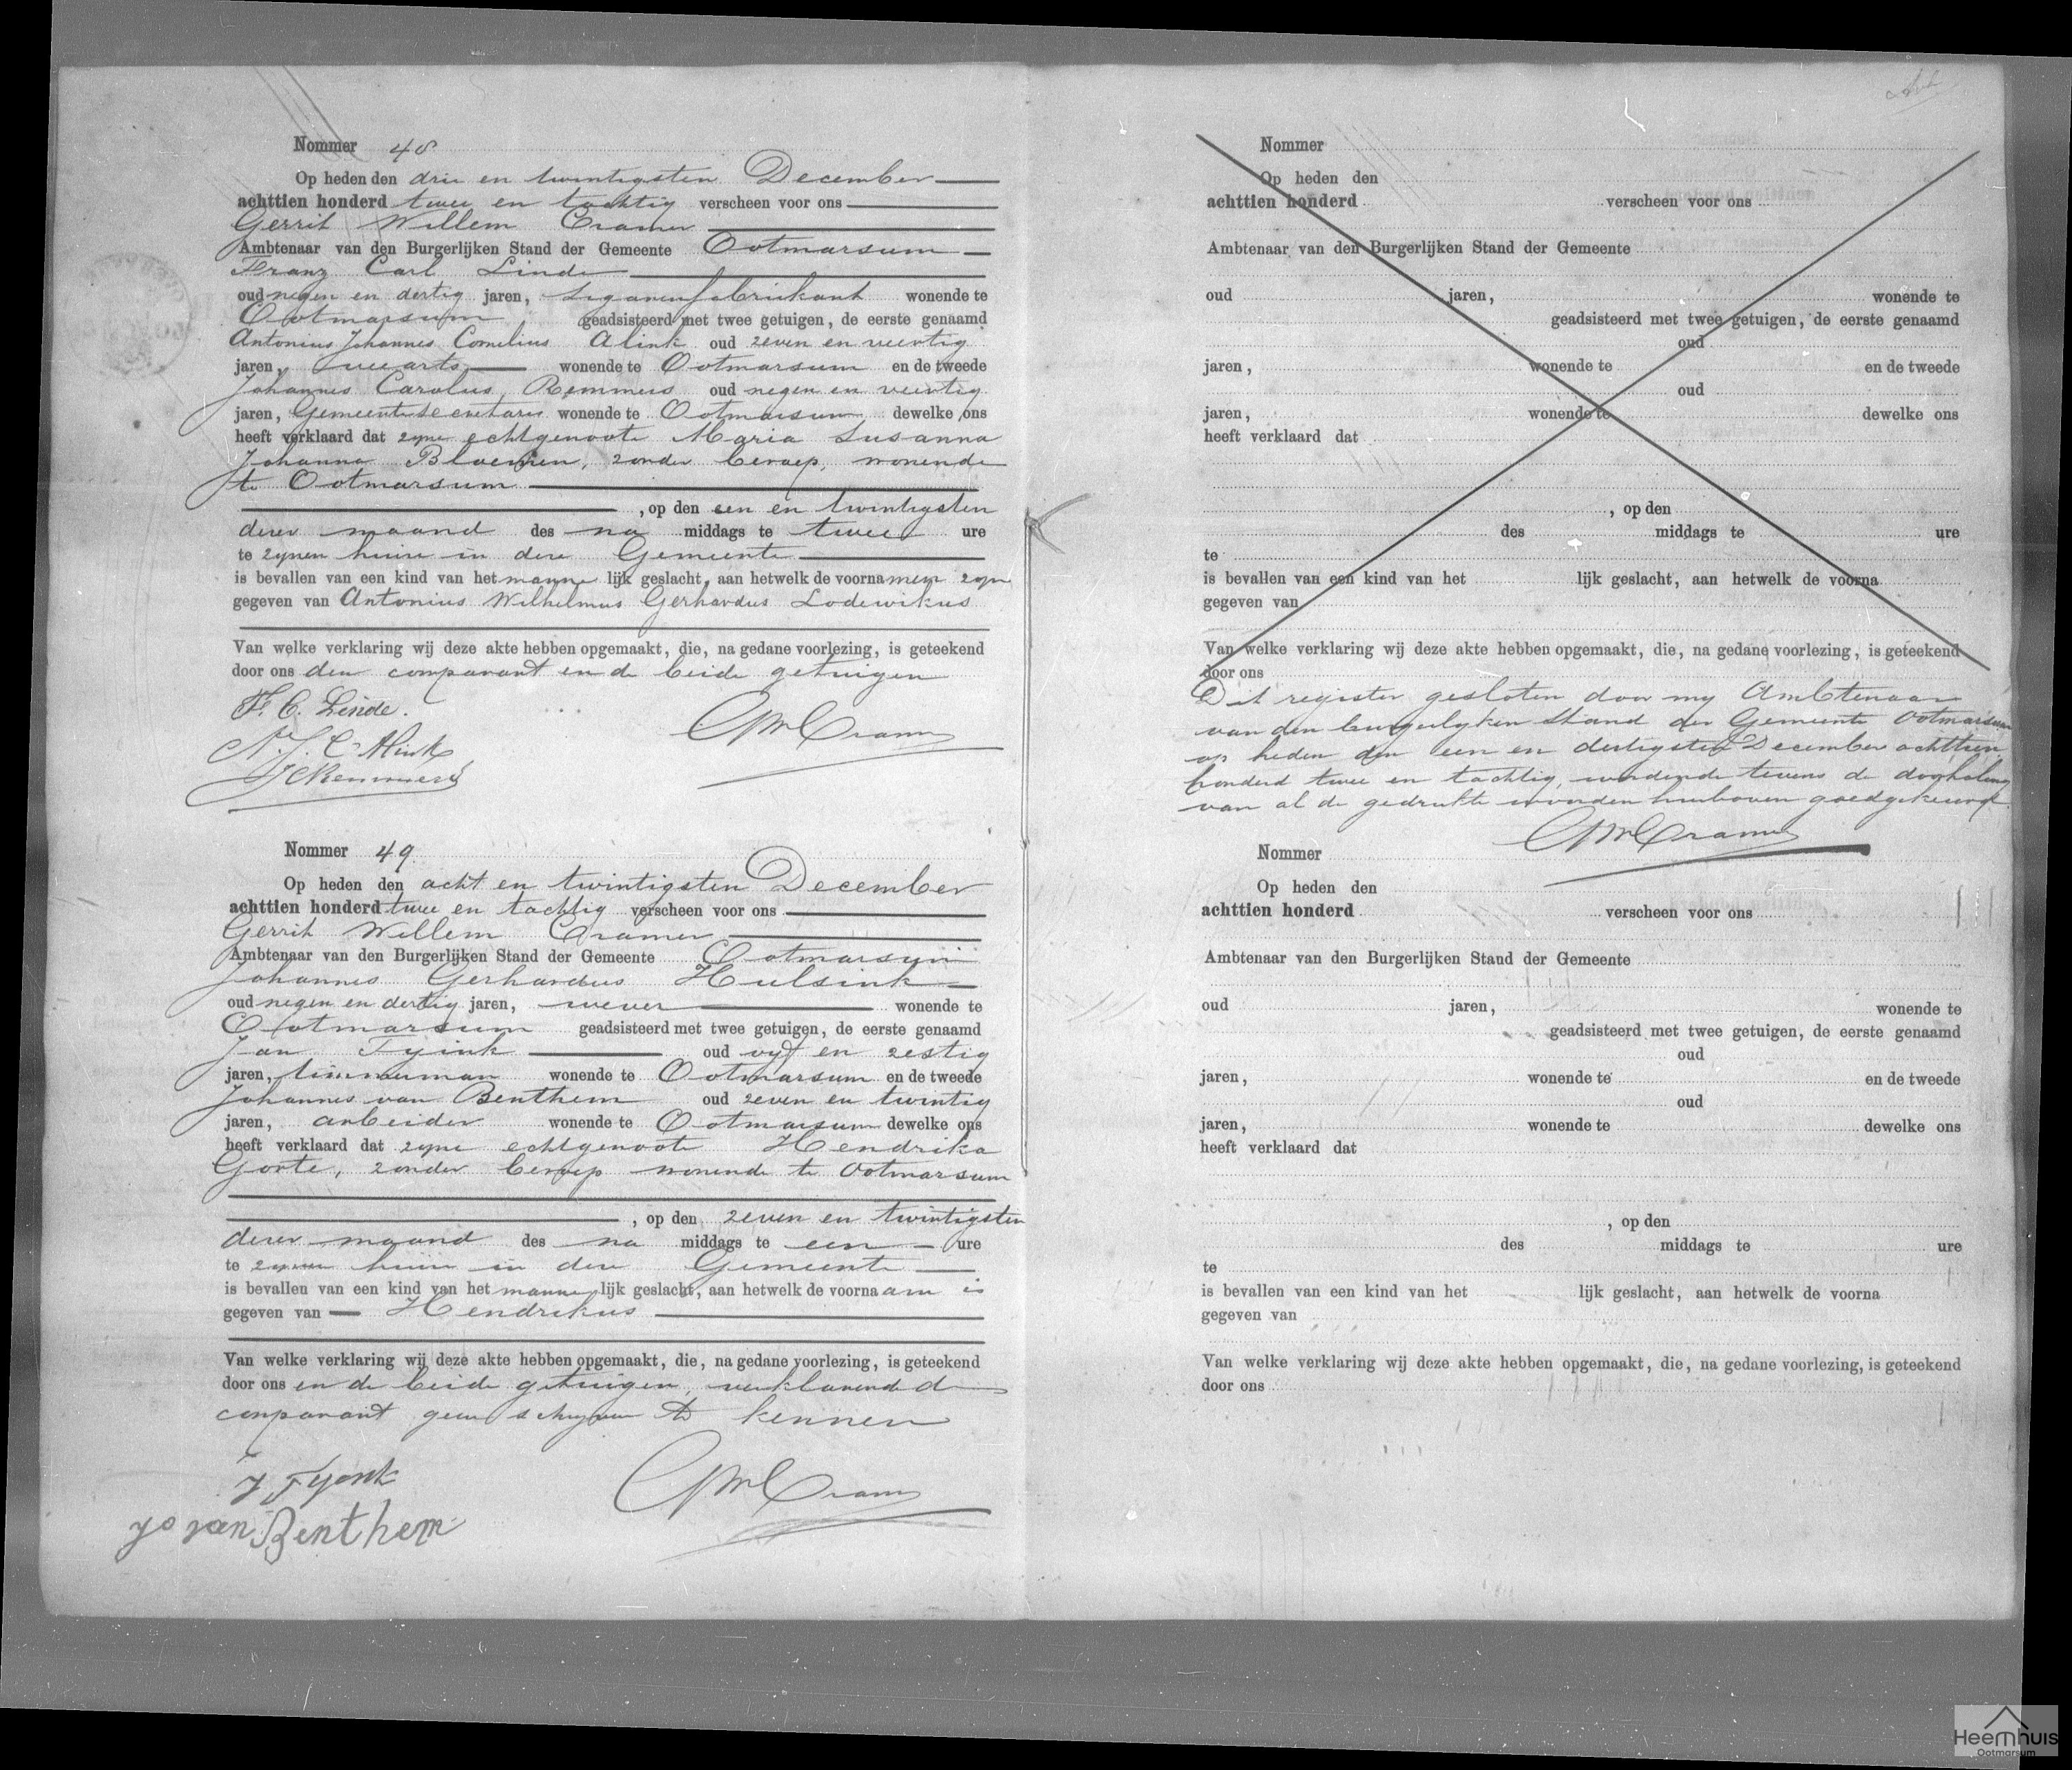 Nommer 48
Op heden den drie en twintigsten December
achttien honderd twee en tachtig verscheen voor ons
Gerrit Willem Cramer
Ambtenaar van den Burgerlijken Stand der Gemeente Ootmarsum
Franz Carl Linde
oud negen en dertig jaren, sigarenfabriekant wonende te
Ootmarsum geadsisteerd met twee getuigen, de eerste genaamd
Antonius Johannes Cornelius Alink oud zeven en veertig
jaren, veearts wonende te Ootmarsum en de tweede
Johannes Carolus Remmers oud negen en veertig
jaren, Gemeentesecretaris wonende te Ootmarsum dewelke ons
heeft verklaard dat zyne echtgenoote Maria Susanna
Johanna Bloemen, zonder beroep, wonende
te Ootmarsum
, op den een en twintigsten
dezer maand des na middags te twee ure
te zynen huize in deze Gemeente
is bevallen van een kind van het manne lijk geslacht, aan hetwelk de voornamen zyn
gegeven van Antonius Wilhelmus Gerhardus Lodewikus
Van welke verklaring wij deze akte hebben opgemaakt, die, na gedane voorlezing, is geteekend
door ons den comparant en de beide getuigen
F. C. Linde.
GW Cramer
A. J. C. Alink
JC Remmers
Nommer 49
Op heden den acht en twintigsten December
achttien honderd twee en tachtig verscheen voor ons
Gerrit Willem Cramer
Ambtenaar van den Burgerlijken Stand der Gemeente Ootmarsum
Johannes Gerhardus Hulsink
oud negen en dertig jaren, wever wonende te
Ootmarsum geadsisteerd met twee getuigen, de eerste genaamd
Jan Tyink oud vyf en zestig
jaren, timmerman wonende te Ootmarsum en de tweede
Johannes van Benthem oud zeven en twintig
jaren, arbeider wonende te Ootmarsum dewelke ons
heeft verklaard dat zyne echtgenoote Hendrika
Gorte, zonder beroep wonende te Ootmarsum
, op den zeven en twintigsten
dezer maand des na middags te een ure
te zynen huize in deze Gemeente
is bevallen van een kind van het manne lijk geslacht, aan hetwelk de voornaam is
gegeven van Hendrikus
Van welke verklaring wij deze akte hebben opgemaakt, die, na gedane voorlezing, is geteekend
door ons en de beide getuigen, verklarende de
comparant geen schryven te kennen
GW Cramer
J Tyink
Jo van Benthem
Nommer
Op heden den
achttien honderd verscheen voor ons
Ambtenaar van den Burgerlijken Stand der Gemeente
oud jaren, wonende te
geadsisteerd met twee getuigen, de eerste genaamd
oud
jaren, wonende te en de tweede
oud
jaren, wonende te dewelke ons
heeft verklaard dat
, op den
des middags te ure
te
is bevallen van een kind van het lijk geslacht, aan hetwelk de voorna
gegeven van
Van welke verklaring wij deze akte hebben opgemaakt, die, na gedane voorlezing, is geteekend
door ons
Dit register gesloten door my Ambtenaar
van den burgerlyken Stand der Gemeente Ootmarsum
op heden den een en dertigsten December achttien
honderd twee en tachtig, wordende tevens de doorhaling
van al de gedrukte woorden hierboven goedgekeurd.
GW Cramer
Nommer
Op heden den
achttien honderd verscheen voor ons
Ambtenaar van den Burgerlijken Stand der Gemeente
oud jaren, wonende te
geadsisteerd met twee getuigen, de eerste genaamd
oud
jaren, wonende te en de tweede
oud
jaren, wonende te dewelke ons
heeft verklaard dat
, op den
des middags te ure
te
is bevallen van een kind van het lijk geslacht, aan hetwelk de voorna
gegeven van
Van welke verklaring wij deze akte hebben opgemaakt, die, na gedane voorlezing, is geteekend
door ons
Heemhuis
Ootmarsum